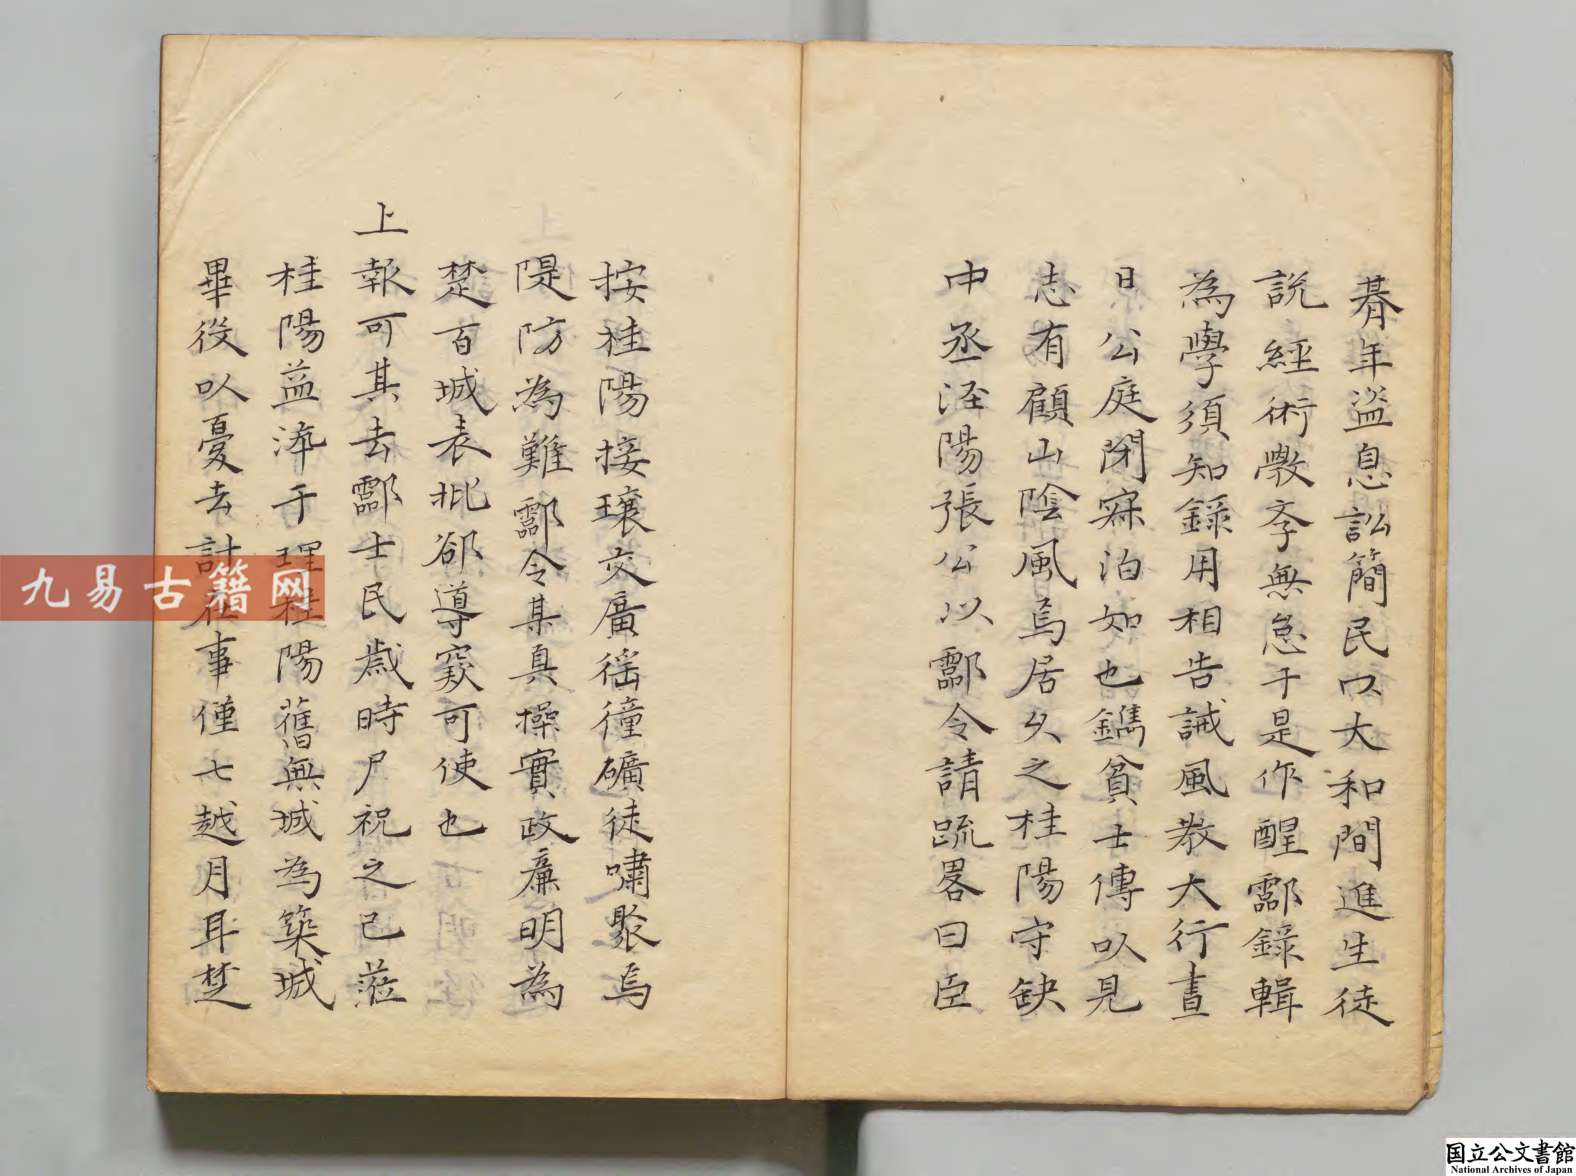 朞年盜息訟簡民以大和間進生徒
說經術斆孝無怠于是作醒酃錄輯
為學須知錄用相告誡風教大行晝
日公庭閉寂泊如也鐫貧士傳以見
志有顧山陰風焉居久之桂陽守缺
中丞涇陽張公以酃令請疏畧曰臣
按桂陽接壤交廣徭獞礦徒嘯聚焉
隄防為難酃令某真操實政廉明為
楚百城表批郤導窾可使也
上報可其去酃士民歲時尸祝之已蒞
桂陽益滌于理桂陽舊無城為築城
畢役以憂去計在事僅七越月耳楚
九易古籍网
国立公文書館
National Archives of Japan